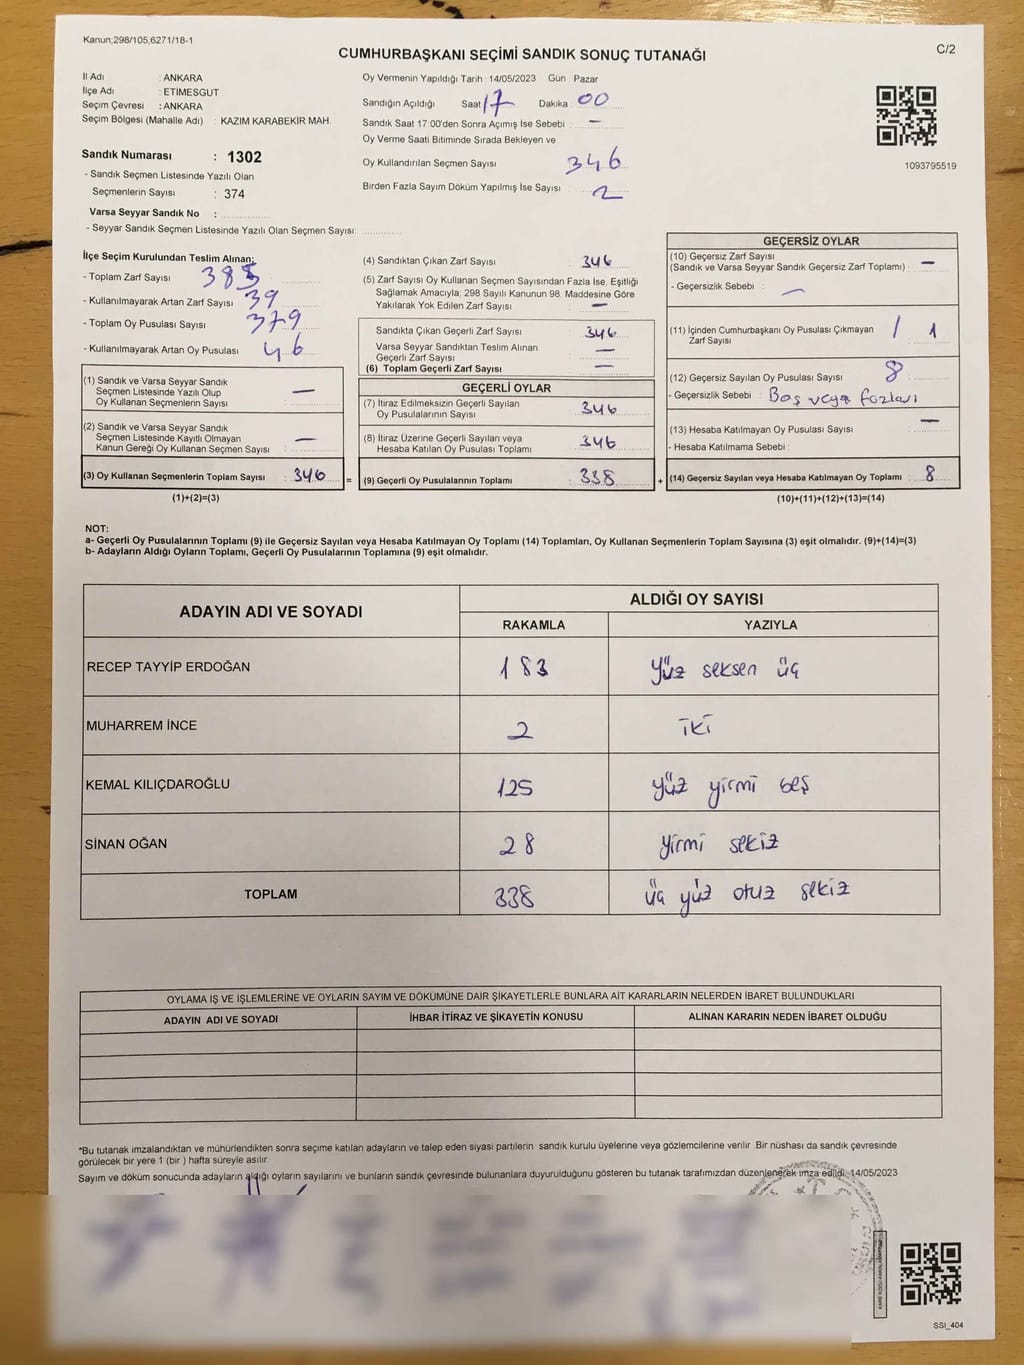 Kanun;298/105,6271/18-1
C/2
CUMHURBAŞKANI SEÇİMİ SANDIK SONUÇ TUTANAĞI
İl Adı : ANKARA
İlçe Adı : ETİMESGUT
Seçim Çevresi : ANKARA
Seçim Bölgesi (Mahalle Adı) : KAZIM KARABEKİR MAH.
Sandık Numarası : 1302
- Sandık Seçmen Listesinde Yazılı Olan
Seçmenlerin Sayısı : 374
Varsa Seyyar Sandık No :
- Seyyar Sandık Seçmen Listesinde Yazılı Olan Seçmen Sayısı:
Oy Vermenin Yapıldığı Tarih :14/05/2023 Gün : Pazar
Sandığın Açıldığı Saat 17 Dakika 00
Sandık Saat 17:00'den Sonra Açımış İse Sebebi : —
Oy Verme Saati Bitiminde Sırada Bekleyen ve
Oy Kullandırılan Seçmen Sayısı : 346
Birden Fazla Sayım Döküm Yapılmış İse Sayısı : 2
1093795519
İlçe Seçim Kurulundan Teslim Alınan:
- Toplam Zarf Sayısı : 385
- Kullanılmayarak Artan Zarf Sayısı : 39
- Toplam Oy Pusulası Sayısı : 379
- Kullanılmayarak Artan Oy Pusulası : 46
(1) Sandık ve Varsa Seyyar Sandık
Seçmen Listesinde Yazılı Olup
Oy Kullanan Seçmenlerin Sayısı : —
(2) Sandık ve Varsa Seyyar Sandık
Seçmen Listesinde Kayıtlı Olmayan
Kanun Gereği Oy Kullanan Seçmen Sayısı : —
(3) Oy Kullanan Seçmenlerin Toplam Sayısı : 346 =
(1)+(2)=(3)
(4) Sandıktan Çıkan Zarf Sayısı : 346
(5) Zarf Sayısı Oy Kullanan Seçmen Sayısından Fazla İse, Eşitliği
Sağlamak Amacıyla; 298 Sayılı Kanunun 98. Maddesine Göre
Yakılarak Yok Edilen Zarf Sayısı : —
Sandıkta Çıkan Geçerli Zarf Sayısı : 346
Varsa Seyyar Sandıktan Teslim Alınan
Geçerli Zarf Sayısı : —
(6) Toplam Geçerli Zarf Sayısı : —
GEÇERLİ OYLAR
(7) İtiraz Edilmeksizin Geçerli Sayılan
Oy Pusulalarının Sayısı : 346
(8) İtiraz Üzerine Geçerli Sayılan veya
Hesaba Katılan Oy Pusulası Toplamı : 346
(9) Geçerli Oy Pusulalarının Toplamı : 338 +
GEÇERSİZ OYLAR
(10) Geçersiz Zarf Sayısı
(Sandık ve Varsa Seyyar Sandık Geçersiz Zarf Toplamı) : —
- Geçersizlik Sebebi : —
(11) İçinden Cumhurbaşkanı Oy Pusulası Çıkmayan / 1
Zarf Sayısı :
(12) Geçersiz Sayılan Oy Pusulası Sayısı : 8
- Geçersizlik Sebebi : Boş veya fazlası
(13) Hesaba Katılmayan Oy Pusulası Sayısı : —
- Hesaba Katılmama Sebebi :
(14) Geçersiz Sayılan veya Hesaba Katılmayan Oy Toplamı : 8
(10)+(11)+(12)+(13)=(14)
NOT:
a- Geçerli Oy Pusulalarının Toplamı (9) ile Geçersiz Sayılan veya Hesaba Katılmayan Oy Toplamı (14) Toplamları, Oy Kullanan Seçmenlerin Toplam Sayısına (3) eşit olmalıdır. (9)+(14)=(3)
b- Adayların Aldığı Oyların Toplamı, Geçerli Oy Pusulalarının Toplamına (9) eşit olmalıdır.
ADAYIN ADI VE SOYADI
ALDIĞI OY SAYISI
RAKAMLA YAZIYLA
RECEP TAYYİP ERDOĞAN 183 yüz seksen üç
MUHARREM İNCE 2 iki
KEMAL KILIÇDAROĞLU 125 yüz yirmi beş
SİNAN OĞAN 28 yirmi sekiz
TOPLAM 338 üç yüz otuz sekiz
OYLAMA İŞ VE İŞLEMLERİNE VE OYLARIN SAYIM VE DÖKÜMÜNE DAİR ŞİKAYETLERLE BUNLARA AİT KARARLARIN NELERDEN İBARET BULUNDUKLARI
ADAYIN ADI VE SOYADI İHBAR İTİRAZ VE ŞİKAYETİN KONUSU ALINAN KARARIN NEDEN İBARET OLDUĞU
*Bu tutanak imzalandıktan ve mühürlendikten sonra seçime katılan adayların ve talep eden siyasi partilerin sandık kurulu üyelerine veya gözlemcilerine verilir .Bir nüshası da sandık çevresinde
görülecek bir yere 1 (bir ) hafta süreyle asılır.
Sayım ve döküm sonucunda adayların aldığı oyların sayılarını ve bunların sandık çevresinde bulunanlara duyurulduğunu gösteren bu tutanak tarafımızdan düzenlenerek imza edildi. 14/05/2023
SSI_404